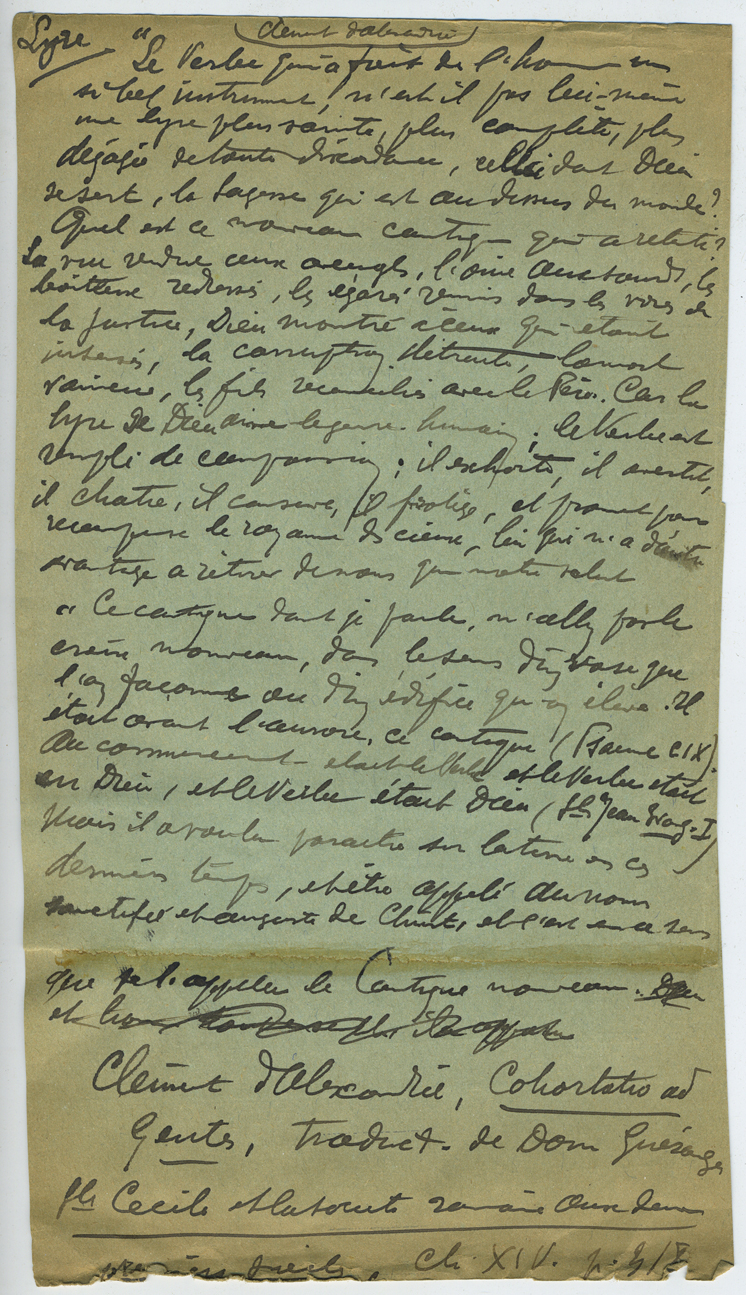 Lyre
Clément d'Alexandrie
"Le Verbe qui a fait de l'homme un
si bel instrument, n'est il pas lui-même
une lyre plus sainte, plus complète, plus
dégagé de toute discordance, celle dont Dieu
se sert, la Sagesse qui est au dessus du monde?
Quel est ce nouveau cantique
La vue rendue aux aveugles, l'ouïe aux sourds, les
boiteux redressés, les égarés remis dans les voies de
la justice, Dieu montré à ceux qui étaient
insensés, la corruption détruite, la mort
vaincue, les fils réconciliés avec le Père. Car la
lyre de Dieu aime le genre humain; le Verbe est
rempli de compassion; il exhorte, il avertit,
il chatie, il conserve, il protège, et promet pour
récompense le royaume des cieux, lui qui n'a d'autre
avantage à retirer de nous que notre salut
"Ce cantique dont je parle, n'allez pas le
croire nouveau, dans le sens d'un vase que
l'on façonne ou d'un édifice qu'on élève. Il
était avant l'aurore, ce cantique (Psaume CIX).
Au commencement était le Verbe et le Verbe était
en Dieu, et le Verbe était Dieu (St Jean Evang. I)
Mais il a voulu paraitre sur la terre en ces
derniers temps, et être appelé du nom
sanctifié et auguste de Christ, et c'est en ce sens
que je l'appelle le Cantique nouveau. Dieu
et
Clément d'Alexandrie, Cohortatio ad
Gentes, traduct. de Dom Guéranger
Ste Cecile et la société romaine aux deux
premiers siècles, Ch. XIV. p.